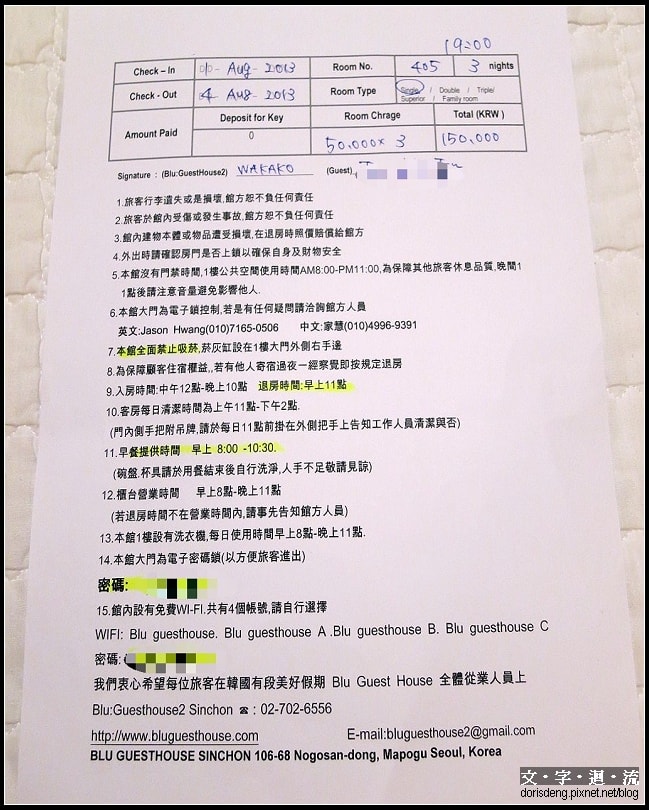 19:00
Check – In 01 - Aug - 2013 Room No. 405 3 nights
Check - Out 4 Aug - 2013 Room Type Single / Double / Triple/
Superior / Family room
Amount Paid Deposit for Key Room Chrage Total (KRW )
0 50,000 x 3 150,000
Signature : (Blu:GuestHouse2) WAKAKO (Guest)
1.旅客行李遺失或是損壞,館方恕不負任何責任
2.旅客於館內受傷或發生事故,館方恕不負任何責任
3.館內建物本體或物品遭受損壞,在退房時照價賠償給館方
4.外出時請確認房門是否上鎖以確保自身及財物安全
5.本館沒有門禁時間,1樓公共空間使用時間AM8:00-PM11:00,為保障其他旅客休息品質,晚間1
1點後請注意音量避免影響他人.
6.本館大門為電子鎖控制,若是有任何疑問請洽詢館方人員
英文:Jason Hwang(010)7165-0506 中文:家慧(010)4996-9391
7.本館全面禁止吸菸,菸灰缸設在1樓大門外側右手邊
8.為保障顧客住宿權益,,若有他人寄宿過夜一經察覺即按規定退房
9.入房時間:中午12點-晚上10點 退房時間:早上11點
10.客房每日清潔時間為上午11點-下午2點.
(門內側手把附吊牌,請於每日11點前掛在外側把手上告知工作人員清潔與否)
11.早餐提供時間 早上 8:00 -10:30.
(碗盤.杯具請於用餐結束後自行洗淨,人手不足敬請見諒)
12.櫃台營業時間 早上8點-晚上11點
(若退房時間不在營業時間內,請事先告知館方人員)
13.本館1樓設有洗衣機,每日使用時間早上8點-晚上11點.
14.本館大門為電子密碼鎖(以方便旅客進出)
密碼:
15.館內設有免費WI-FI,共有4個帳號,請自行選擇
WIFI: Blu guesthouse. Blu guesthouse A .Blu guesthouse B. Blu guesthouse C
密碼:
我們衷心希望每位旅客在韓國有段美好假期 Blu Guest House 全體從業人員上
Blu:Guesthouse2 Sinchon ☎ : 02-702-6556
http://www.bluguesthouse.com E-mail:bluguesthouse2@gmail.com
BLU GUESTHOUSE SINCHON 106-68 Nogosan-dong, Mapogu Seoul, Korea
文‧字‧迴‧流
dorisdeng.pixnet.net/blog